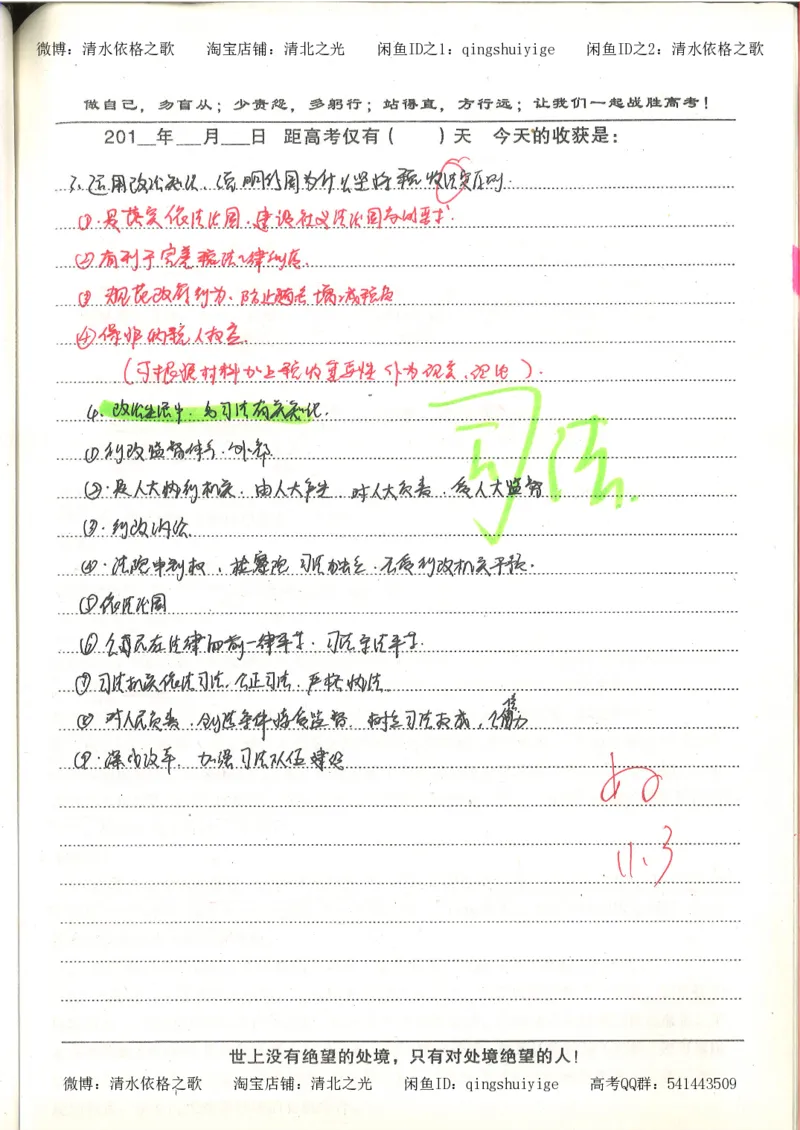 微博：清水依格之歌 淘宝店铺：清北之光 闲鱼ID之1：qingshuiyige 闲鱼ID之2：清水依格之歌
做自己，勿盲从；少责怨，多躬行；站得直，方行远；让我们一起战胜高考！
201__年___月___日 距高考仅有（ ）天 今天的收获是：
3.运用政治知识，说明我国为什么坚持税收法定原则.
①.是落实依法治国.建设社会主义法治国家的要求.
②有利于完善税法法律制度.
③ 规范政府行为、防止随意增减税负
④保护纳税人权益.
（可根据材料加上税收重要性 分为现实、理论）.
4.政治生活中，与司法有关知识.
①行政监督体系.外部
②.是人大执行机关，由人大产生 对人大负责，受人大监督
③.行政诉讼
④.法院审判权，检察院 司法独立.不受行政机关干预.
⑤依法治国
⑥公民在法律面前一律平等.司法守法平等.
⑦司法机关依法司法.公正司法.严格执法.
⑧对人民负责，创造条件接受监督，树立司法权威，公信力
⑨.深化改革.加强司法队伍建设
司法.
好
11.3
世上没有绝望的处境，只有对处境绝望的人！
微博：清水依格之歌 淘宝店铺：清北之光 闲鱼ID：qingshuiyige 高考QQ群：541443509